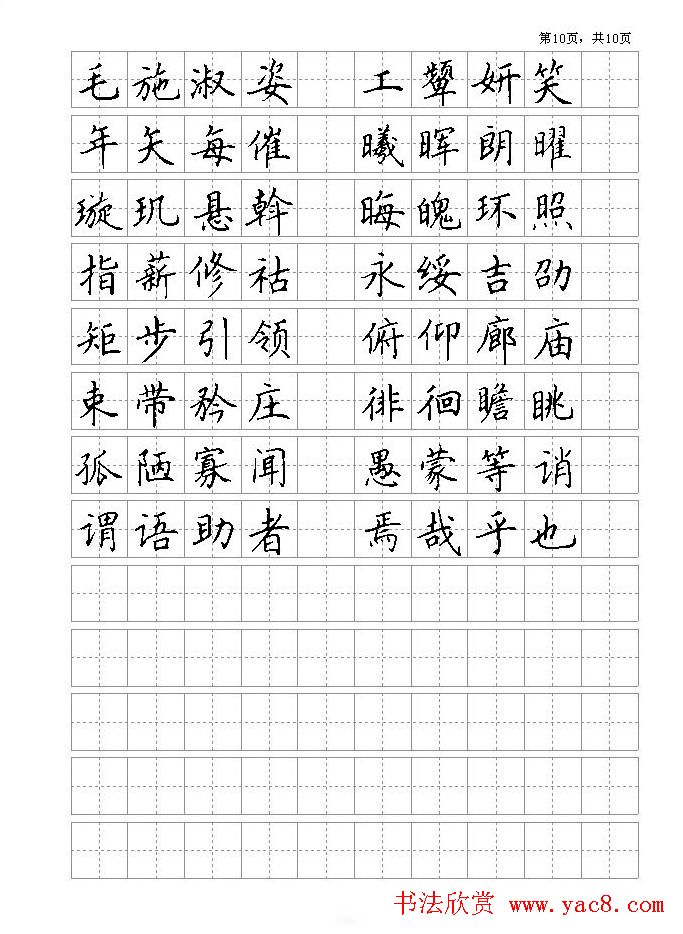 第10页，共10页
毛施淑姿 工颦妍笑
年矢每催 曦晖朗曜
璇玑悬斡 晦魄环照
指薪修祜 永绥吉劭
矩步引领 俯仰廊庙
束带矜庄 徘徊瞻眺
孤陋寡闻 愚蒙等诮
谓语助者 焉哉乎也
书法欣赏 www.yac8.com